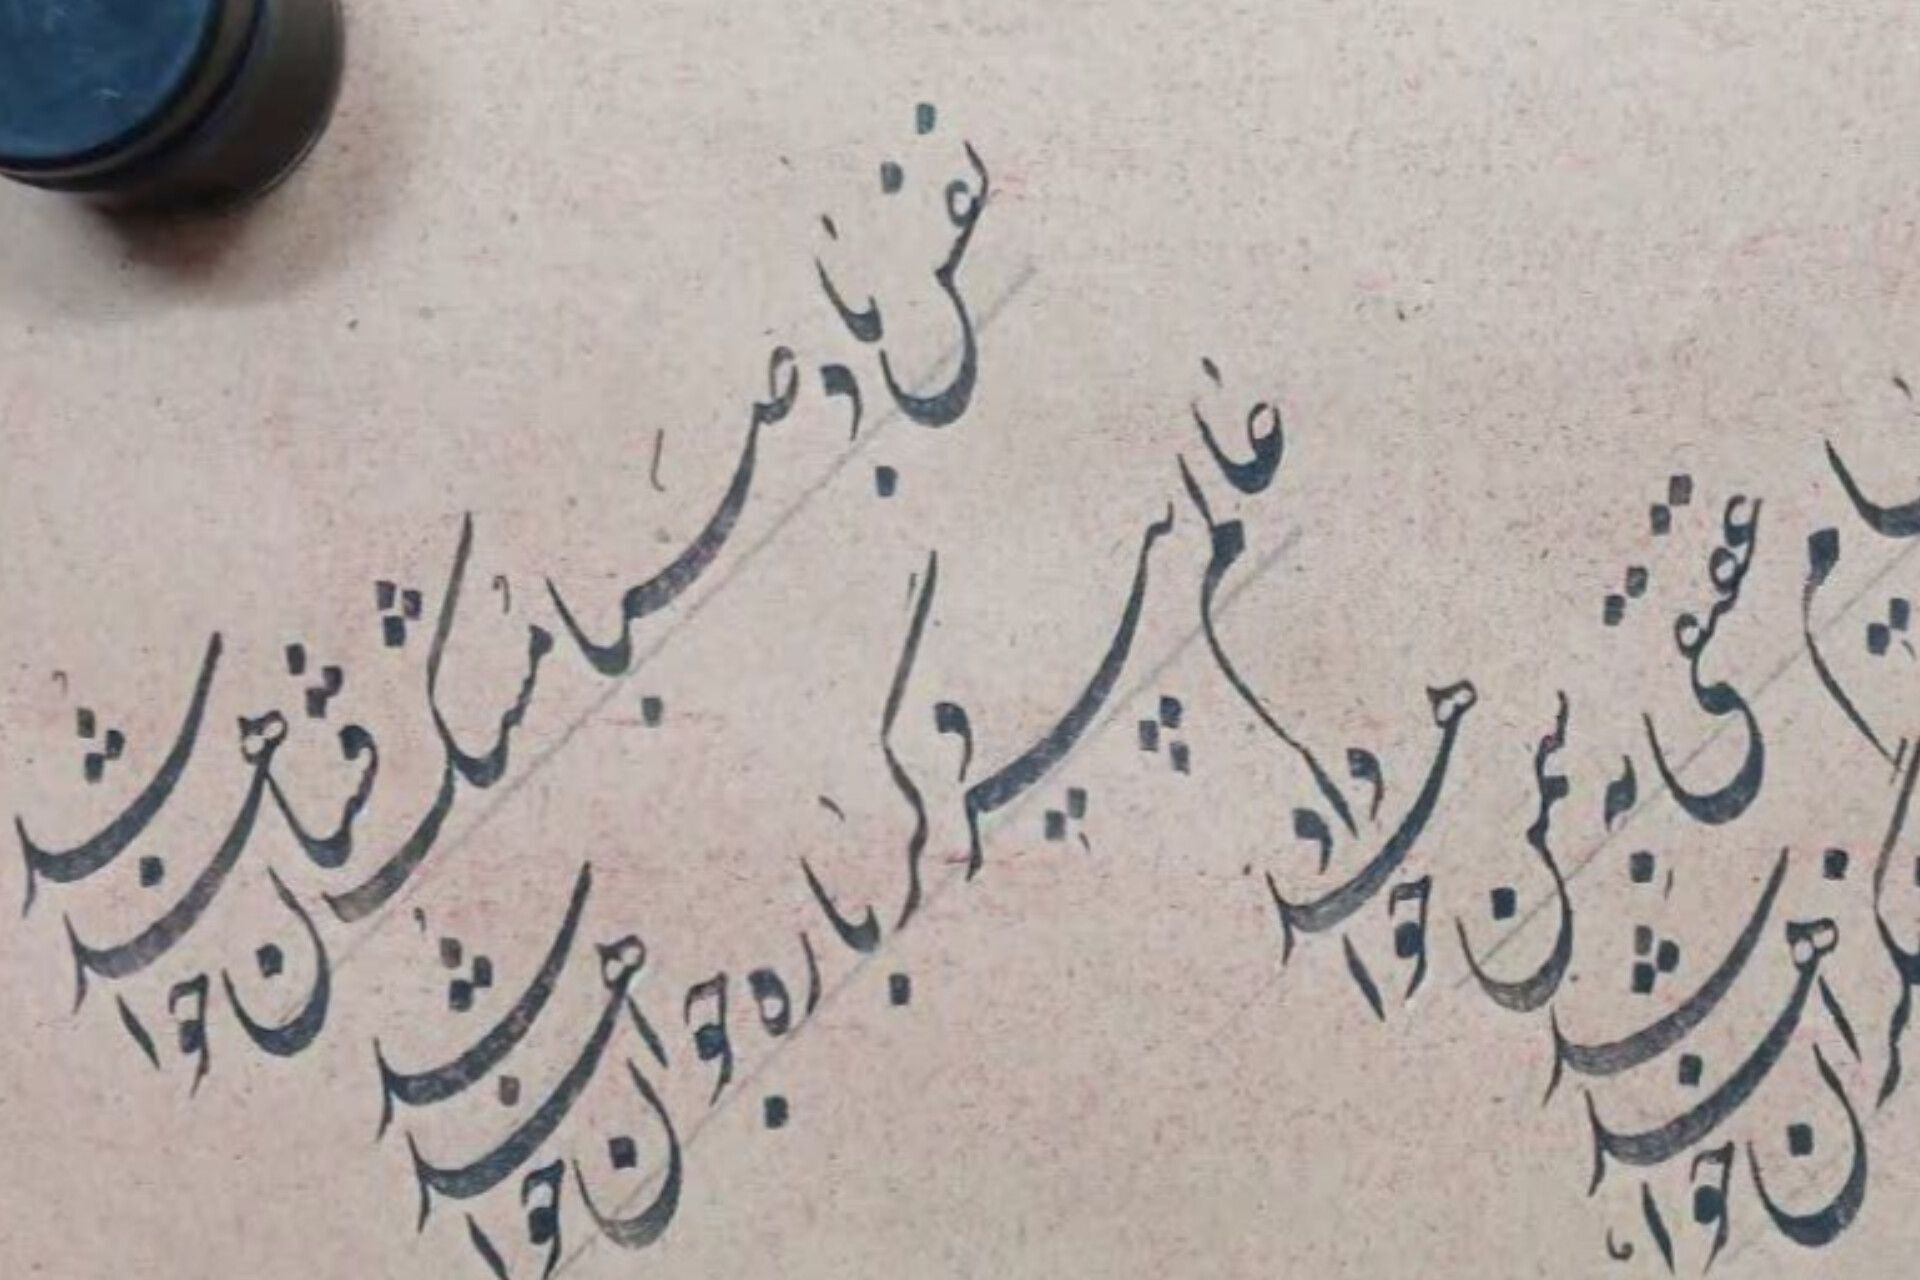 نفس باد صبا مشک فشان خواهد شد
عالم پیر دگر باره جوان خواهد شد
جام عقیقی به سمن خواهد داد
نگران خواهد شد